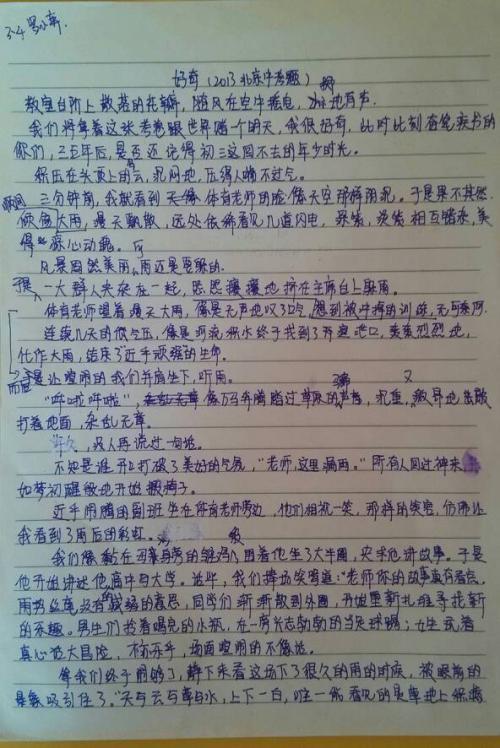 好奇（2013北京中考题）
教室台阶上散落的花瓣，随风在空中摇曳，地有声.
我们将拿着这张考卷跟世界赌个明天，我很好奇，此时此刻奋笔疾书的
你们，三五年后，是否还记得初三这回不去的年少时光。
积压在头顶上的云，沉闷地，压得人喘不过气。
三分钟前，我就看到天像体育老师的脸像天空那样阴沉。于是果不其然.
倾盆大雨，漫天飘散，远处依稀看见几道闪电，相互错杂，美
得心动魄。
风景固然美丽，雨还是要躲的.
于是，一大群人夹杂在一起，熙熙攘攘地挤在主席台上躲雨。
体育老师望着漫天大雨，像是无声地叹了口气，想到被冲掉的训练，无可奈何.
连续几天的低气压，像是河流积水终于找到了开启地口，轰轰烈烈地，
化作大雨，结束了近乎顽强的生命.
于是让喧闹的我们并肩坐下，听雨。
“呼啦呼啦”，像万马奔腾踏过草原的声音，沉重，
打着地面，杂乱无章.
许久，没人再说过一句话.
不知是谁开口打破了美好的气氛，“老师，这里漏雨。”所有人回过神来，
如梦初醒般地开始搬椅子.
近乎闹腾的副班坐在体育老师旁边，他们相视一笑，那样的笑容，仿佛让
我看到了雨后的彩虹.
我们像黏在母鸡身旁的雏鸡般围着他坐了大半圈，央求他讲故事。于是
他开始讲述他高中与大学。这些，我们捧场笑骂道：“老师你的故事真有看点.
雨势丝毫没有减弱的意思，同学们渐渐散到外围，开始重新扎堆寻找新
的乐趣。男生们拾着喝完的水瓶，在一旁的当足球踢；女生玩着
真心话大冒险，不亦乐乎，场面喧闹的不像话.
等我们终于闹够了，静下来看这场下了很久的雨的时候，被眼前的
景象吸引住了。“天与云与草与水，上下一白，唯一能看见的是草地上